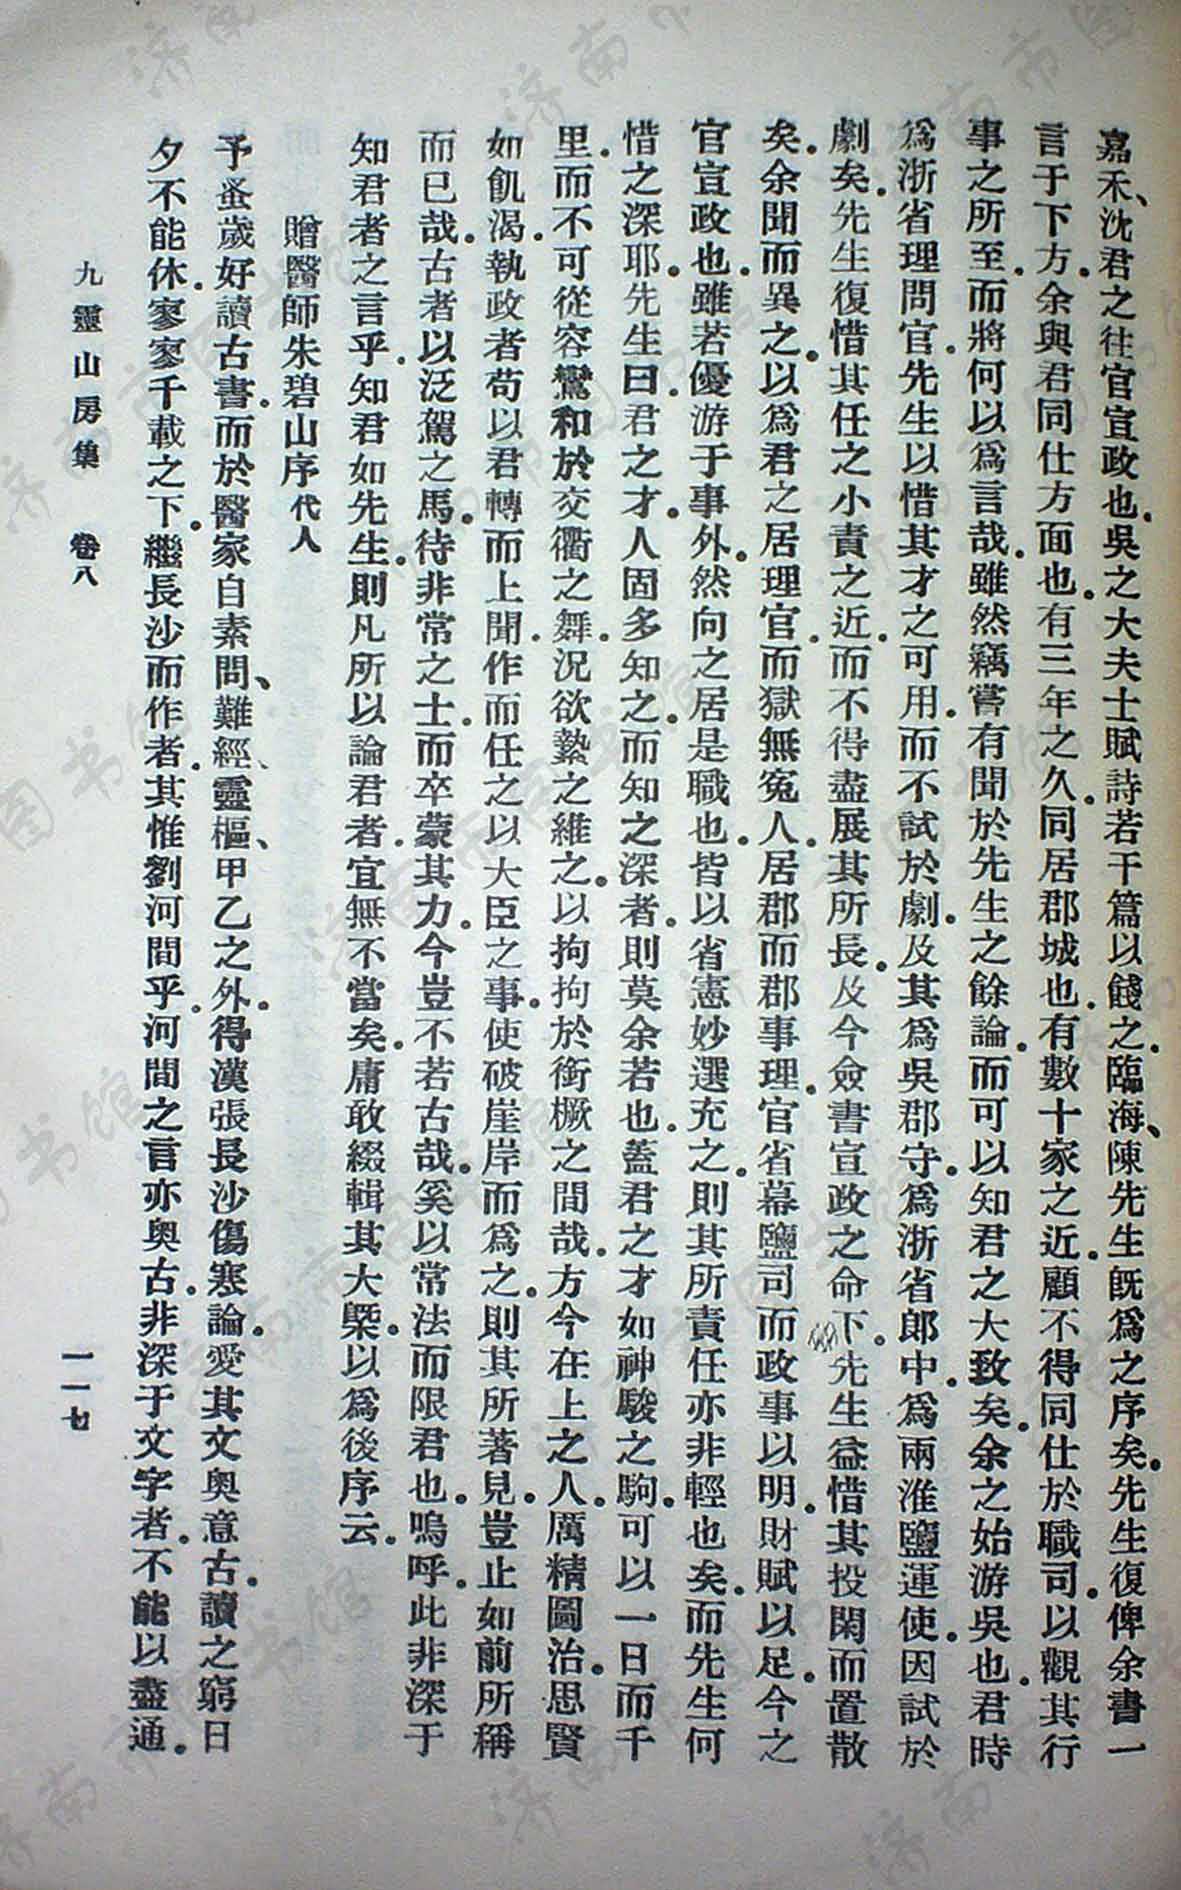 嘉禾、沈君之往官宣政也。吳之大夫士賦詩若干篇以餞之。臨海、陳先生既爲之序矣。先生復俾余書一
言于下方。余與君同仕方面也。有三年之久。同居郡城也。有數十家之近。顧不得同仕於職司。以觀其行
事之所至。而將何以爲言哉。雖然竊嘗有聞於先生之餘論。而可以知君之大致矣。余之始游吳也。君時
爲浙省理問官。先生以惜其才之可用。而不試於劇。及其爲吳郡守。爲浙省郎中。爲兩淮鹽運使。因試於
劇矣。先生復惜其任之小責之近。而不得盡展其所長。及今僉書宣政之命下。先生益惜其投閑而置散
矣。余聞而異之。以爲君之居理官。而獄無冤人。居郡而郡事理。官省幕鹽司而政事以明。財賦以足。今之
官宣政也。雖若優游于事外。然向之居是職也。皆以省憲妙選充之。則其所責任亦非輕也矣。而先生何
惜之深耶。先生曰。君之才。人固多知之。而知之深者。則莫余若也。蓋君之才如神駿之駒。可以一日而千
里。而不可從容鸞和於交衢之舞。況欲縶之維之。以拘拘於銜橛之間哉。方今在上之人。厲精圖治。思賢
如飢渴。執政者苟以君轉而上聞。作而任之以大臣之事。使破崖岸而爲之。則其所著見。豈止如前所稱
而已哉。古者以泛駕之馬。待非常之士。而卒蒙其力。今豈不若古哉。奚以常法而限君也。嗚呼。此非深于
知君者之言乎。知君如先生。則凡所以論君者。宜無不當矣。庸敢綴輯其大槩。以爲後序云。
贈醫師朱碧山序 代人
予蚤歲好讀古書。而於醫家自素問、難經、靈樞、甲乙之外。得漢張長沙傷寒論。愛其文奧意古。讀之窮日
夕不能休。寥寥千載之下。繼長沙而作者。其惟劉河間乎。河間之言亦奥古。非深于文字者。不能以盡通。
九靈山房集 卷八 一一七